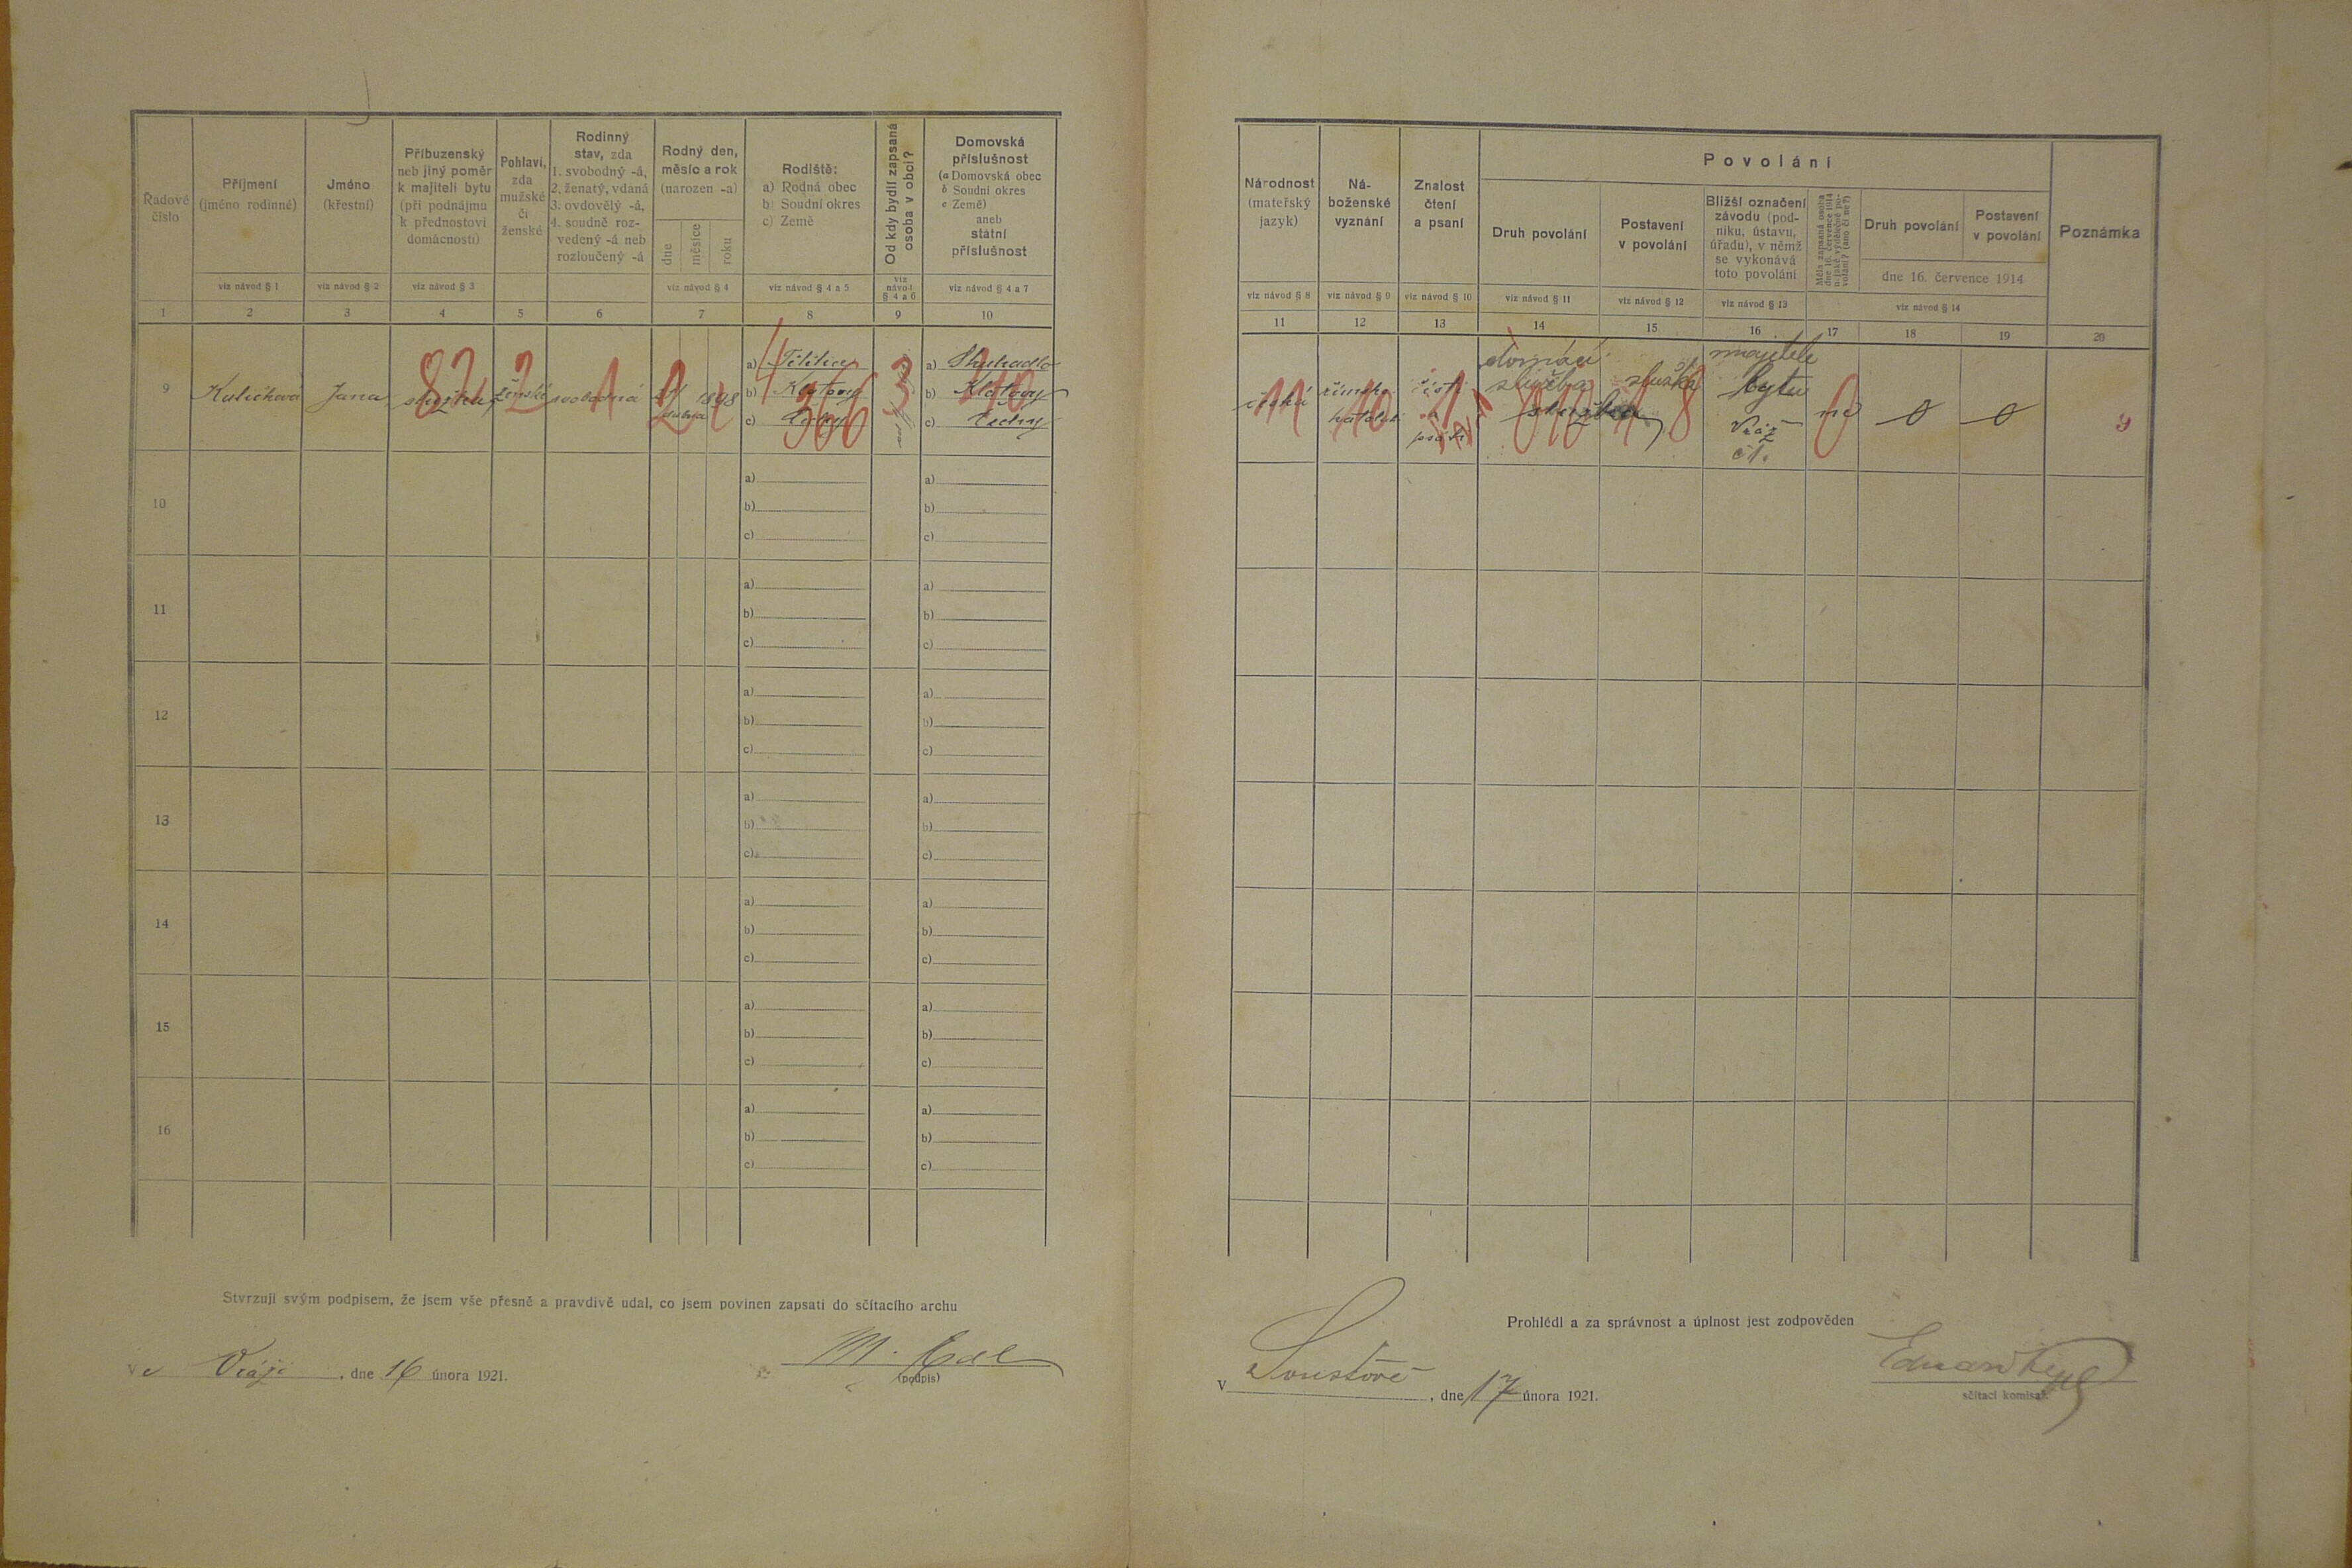 Řadové číslo
Příjmení
(jméno rodinné)
viz návod § 1
Jméno
(křestní)
viz návod § 2
Příbuzenský
neb jiný poměr
k majiteli bytu
(při podnájmu
k přednostovi
domácnosti)
viz návod § 3
Pohlaví,
zda
mužské
či
ženské
Rodinný
stav, zda
1. svobodný -á,
2. ženatý, vdaná
3. ovdovělý -á,
4. soudně roz-
vedený -á neb
rozloučený -á
Rodný den,
měsíc a rok
(narozen -a)
dne
měsíce
roku
viz návod § 4
Rodiště:
a) Rodná obec
b) Soudní okres
c) Země
viz návod § 4 a 5
Od kdy bydlí zapsaná
osoba v obci?
viz
návod
§ 4 a 6
Domovská
příslušnost
(a Domovská obec
b Soudní okres
c Země)
aneb
státní
příslušnost
viz návod § 4 a 7
1 2 3 4 5 6 7 8 9 10
9 Kuličková Jana ženské svobodná 1898
82 2 1 2 3
a)
b) Klatovy
c)
366
a)
b) Klatovy
c) Čechy
10
a) a)
b) b)
c) c)
11
a) a)
b) b)
c) c)
12
a) a)
b) b)
c) c)
13
a) a)
b) b)
c) c)
14
a) a)
b) b)
c) c)
15
a) a)
b) b)
c) c)
16
a) a)
b) b)
c) c)
Stvrzuji svým podpisem, že jsem vše přesně a pravdivě udal, co jsem povinen zapsati do sčítacího archu
Ve Vráži, dne 16 února 1921.
(podpis)
Národnost
(mateřský
jazyk)
viz návod § 8
Ná-
boženské
vyznání
viz návod § 9
Znalost
čtení
a psaní
viz návod § 10
Povolání
Druh povolání
viz návod § 11
Postavení
v povolání
viz návod § 12
Bližší označení
závodu (pod-
niku, ústavu,
úřadu), v němž
se vykonává
toto povolání
viz návod § 13
Měla zapsaná osoba
dne 16. července 1914
a jaké výdělečné po-
volání? (ano či ne?)
Druh povolání
Postavení
v povolání
dne 16. července 1914
viz návod § 14
Poznámka
11 12 13 14 15 16 17 18 19 20
domácí majitele
česká římsko služba služka bytu ne 0 0
katol. a Vráž
psáti č 1.
11 10 1 010 0
Prohlédl a za správnost a úplnost jest zodpověden
V, dne 17 února 1921.
Eduard
sčítací komisař.